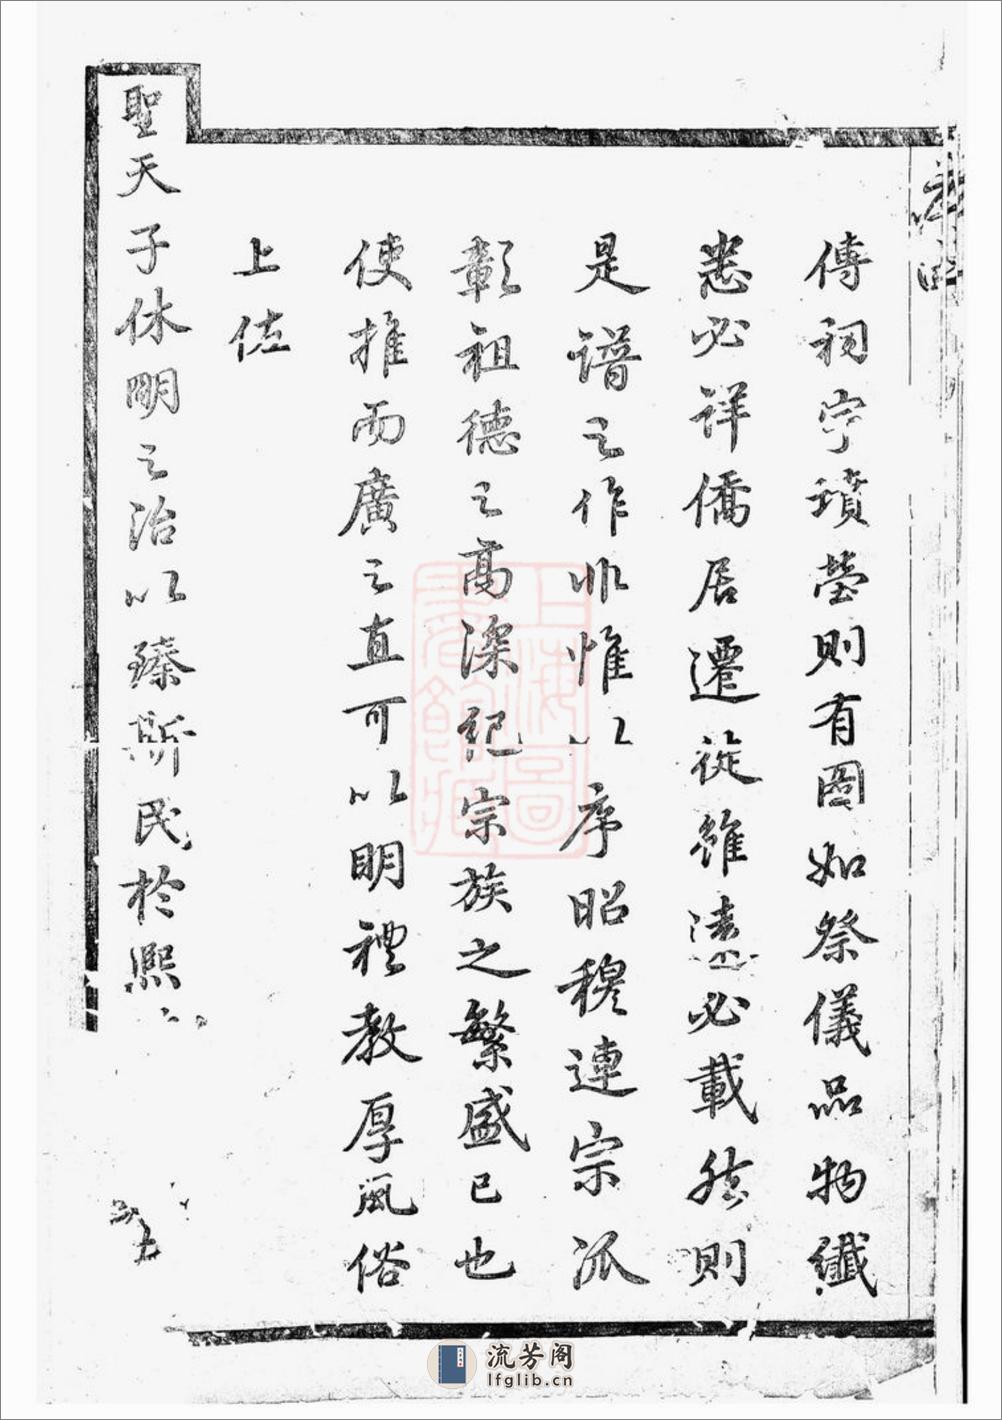 傳祠宇墳塋則有圖如祭儀品物纖
悉必詳僑居遷徙雖遠必載然則
是譜之作非惟以序昭穆連宗派
彰祖德之高深紀宗族之繁盛已也
使推而廣之直可以明禮教厚風俗
上佐
聖天子休明之治以臻斯民於熙
上海圖書館藏
流芳阁
lfglib.cn